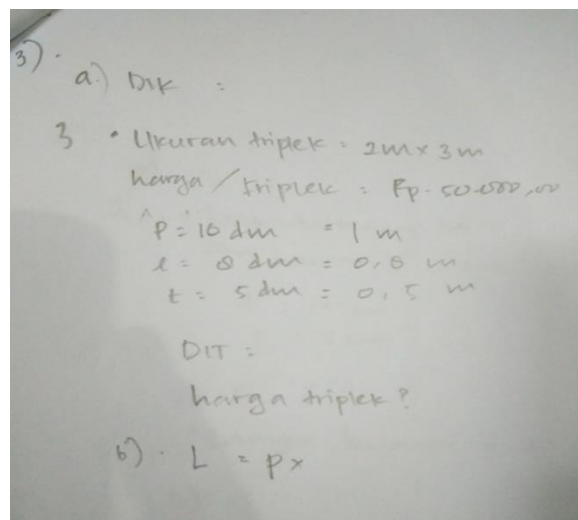 3) .
a.) DIK :
3 • Ukuran triplek = 2m x 3m
harga / triplek : Rp. 50.000,00
P = 10 dm = 1 m
l = 8 dm = 0,8 m
t = 5 dm = 0,5 m
DIT :
harga triplek ?
b) . L = p x